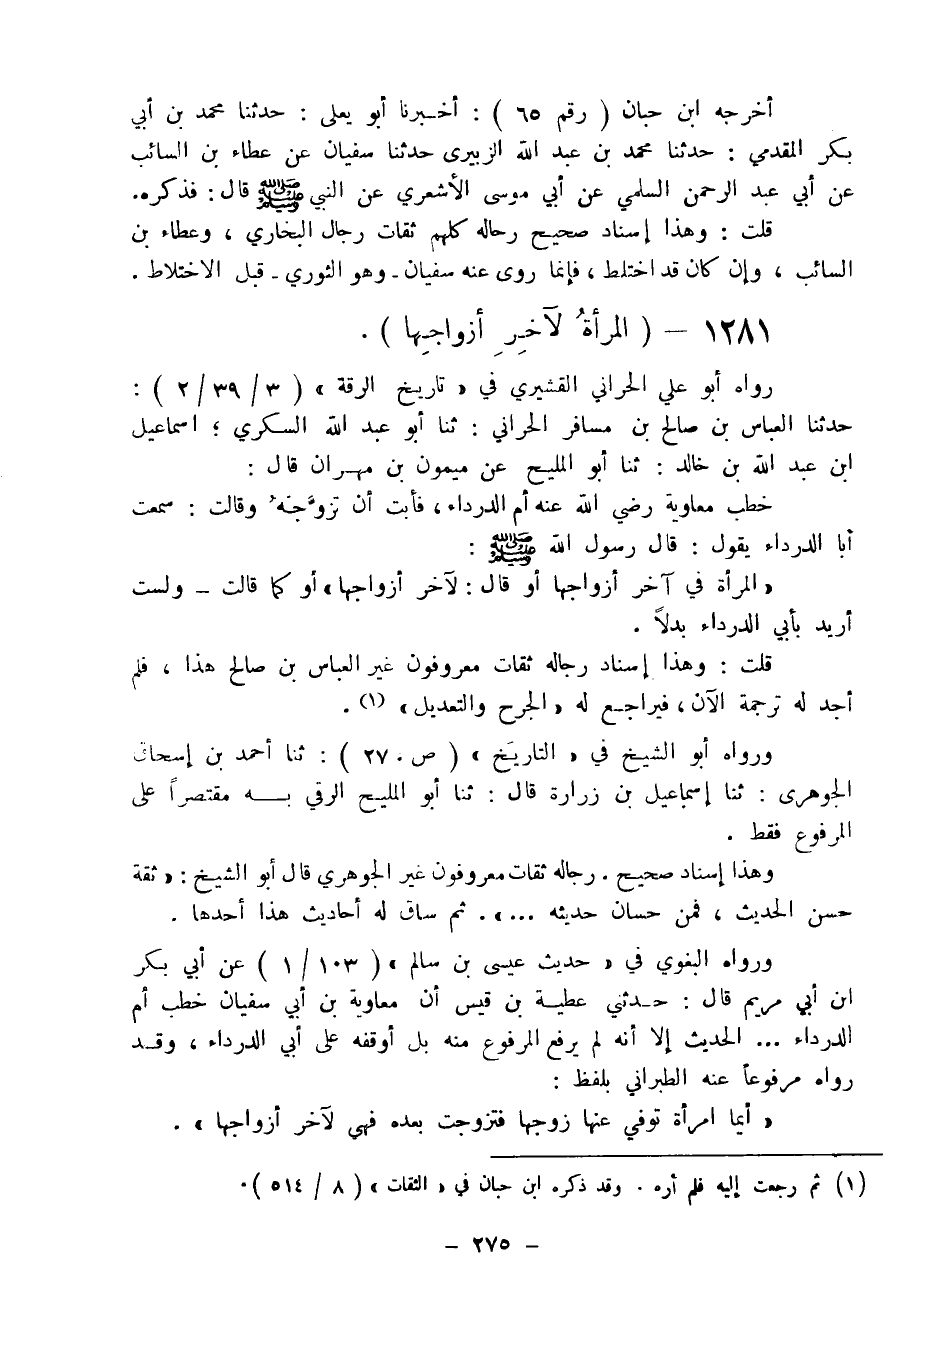 أخرجه ابن حبان ( رقم ٦٥ ) : أخـبرنا أبو يعلى : حدثنا محمد بن أبي
بكر المقدمي : حدثنا محمد بن عبد الله الزبيرى حدثنا سفيان عن عطاء بن السائب
عن أبي عبد الرحمن السلمي عن أبي موسى الأشعري عن النبي ﷺ قال : فذكره.
قلت : وهذا إسناد صحيح رجاله كلهم ثقات رجال البخاري ، وعطاء بن
السائب ، وإن كان قد اختلط ، فإنما روى عنه سفيان ـ وهو الثوري ـ قبل الاختلاط .
١٢٨١ – ( المرأةُ لآخِرِ أزواجِها ) .
رواه أبو علي الحراني القشيري في « تاريخ الرقة » ( ٣ / ٣٩ / ٢ ) :
حدثنا العباس بن صالح بن مسافر الحراني : ثنا أبو عبد الله السكري ؛ اسماعيل
ابن عبد الله بن خالد : ثنا أبو المليح عن ميمون بن مهران قال :
خطب معاوية رضي الله عنه أم الدرداء ، فأبت أن تزوَّجَهُ وقالت : سمعت
أبا الدرداء يقول : قال رسول الله ﷺ :
« المرأة في آخر أزواجها أو قال : لآخر أزواجها » أو كما قالت – ولست
أريد بأبي الدرداء بدلاً .
قلت : وهذا إسناد رجاله ثقات معروفون غير العباس بن صالح هذا ، فلم
أجد له ترجمة الآن ، فيراجع له « الجرح والتعديل » (١) .
ورواه أبو الشيخ في « التاريخ » ( ص ٢٧٠ ) : ثنا أحمد بن إسحاق
الجوهرى : ثنا إسماعيل بن زرارة قال : ثنا أبو المليح الرقي بـــه مقتصراً على
المرفوع فقط .
وهذا إسناد صحيح . رجاله ثقات معروفون غير الجوهري قال أبو الشيخ : « ثقة
حسن الحديث ، فمن حسان حديثه ... » . ثم ساق له أحاديث هذا أحدها .
ورواه البغوي في « حديث عيسى بن سالم » ( ١٠٣ / ١ ) عن أبي بكر
ابن أبي مريم قال : حـدثني عطيـة بن قيس أن معاوية بن أبي سفيان خطب أم
الدرداء ... الحديث إلا أنه لم يرفع المرفوع منه بل أوقفه على أبي الدرداء ، وقـد
رواه مرفوعاً عنه الطبراني بلفظ :
« أيما امرأة توفي عنها زوجها فتزوجت بعده فهي لآخر أزواجها » .
(١) ثم رجعت إليه فلم أره . وقد ذكره ابن حبان في « الثقات » ( ٨ / ٥١٤ ) .
– ٢٧٥ –